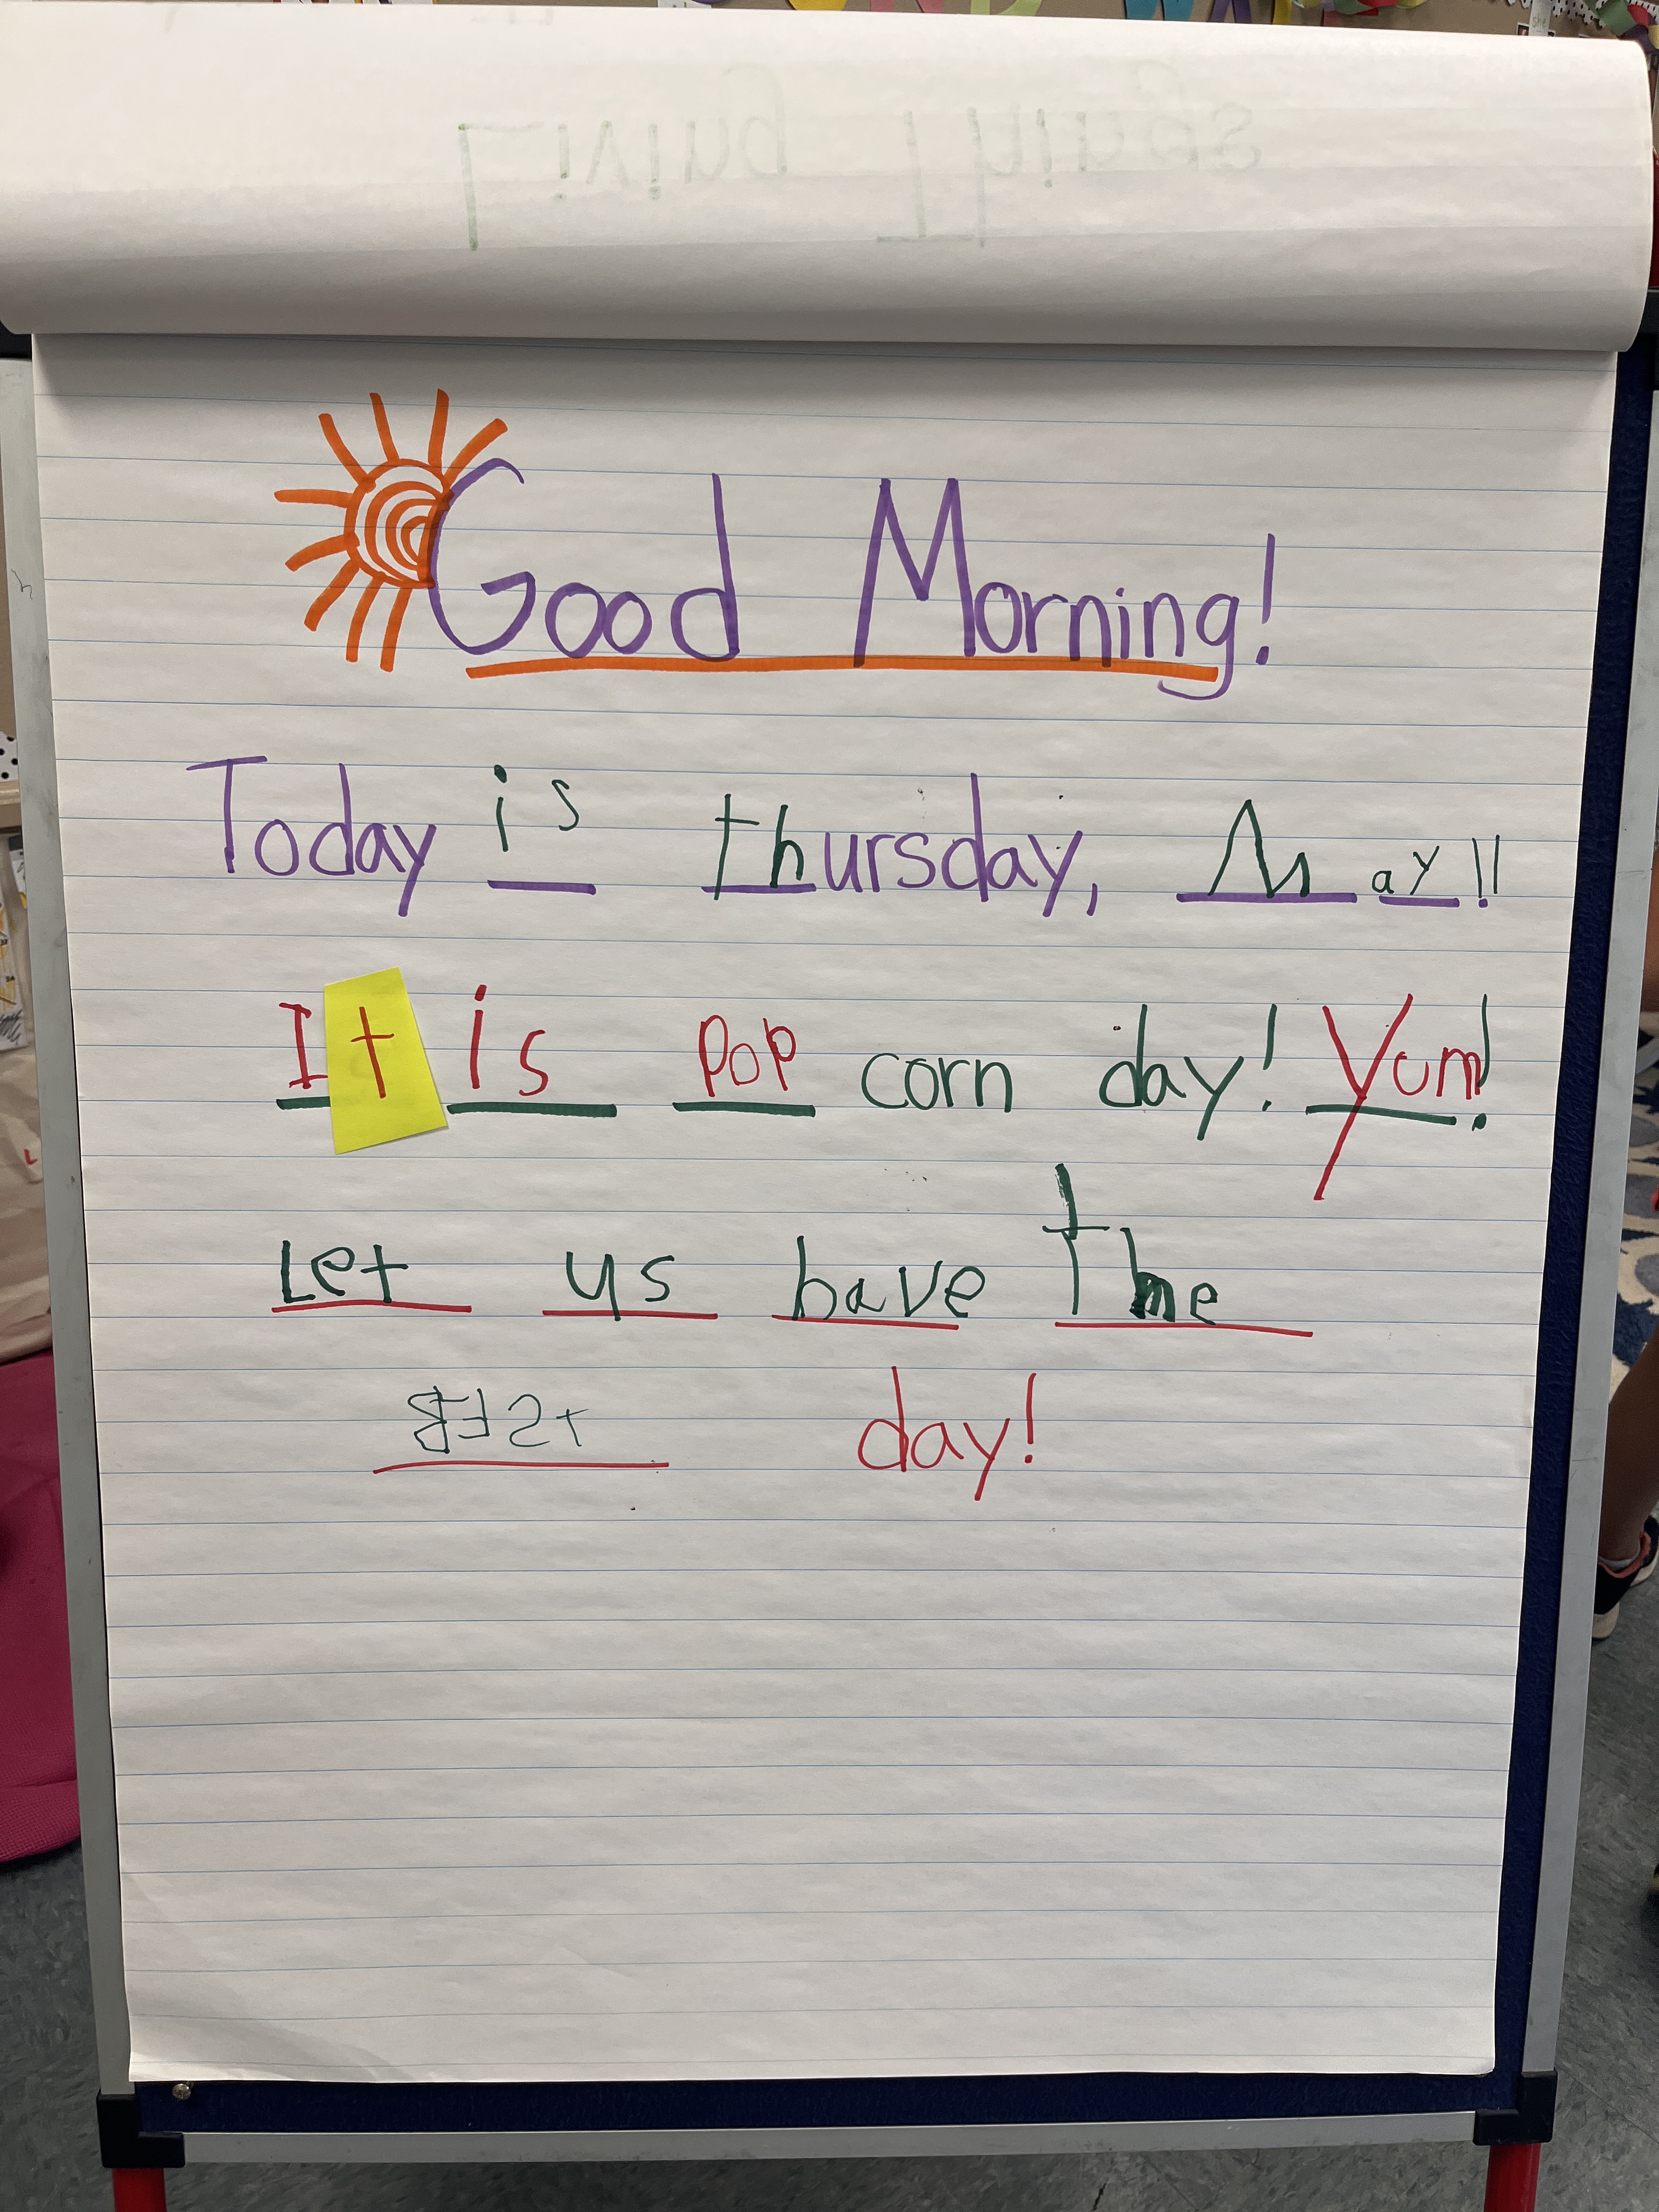 Living Things
Good Morning!
Today is thursday, May !!
It is pop corn day! Yum!
Let us have the
BEST day!